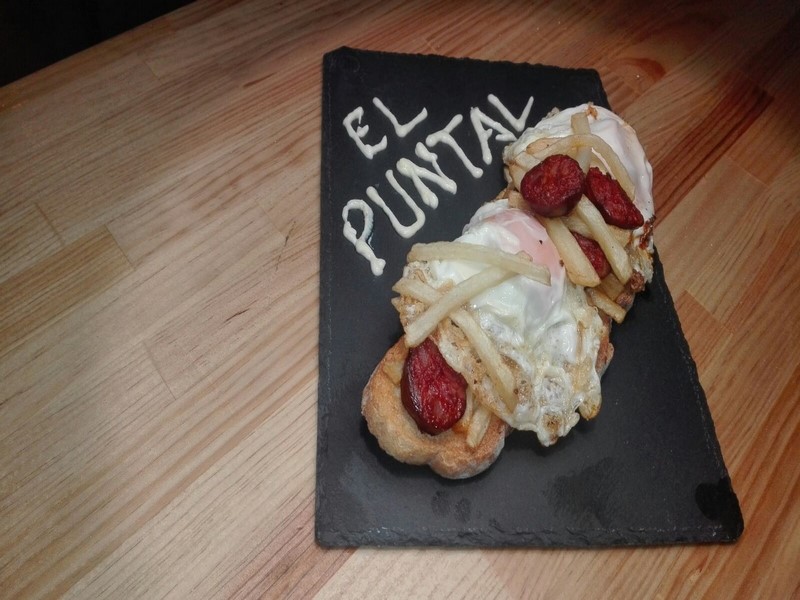 EL
PUNTAL